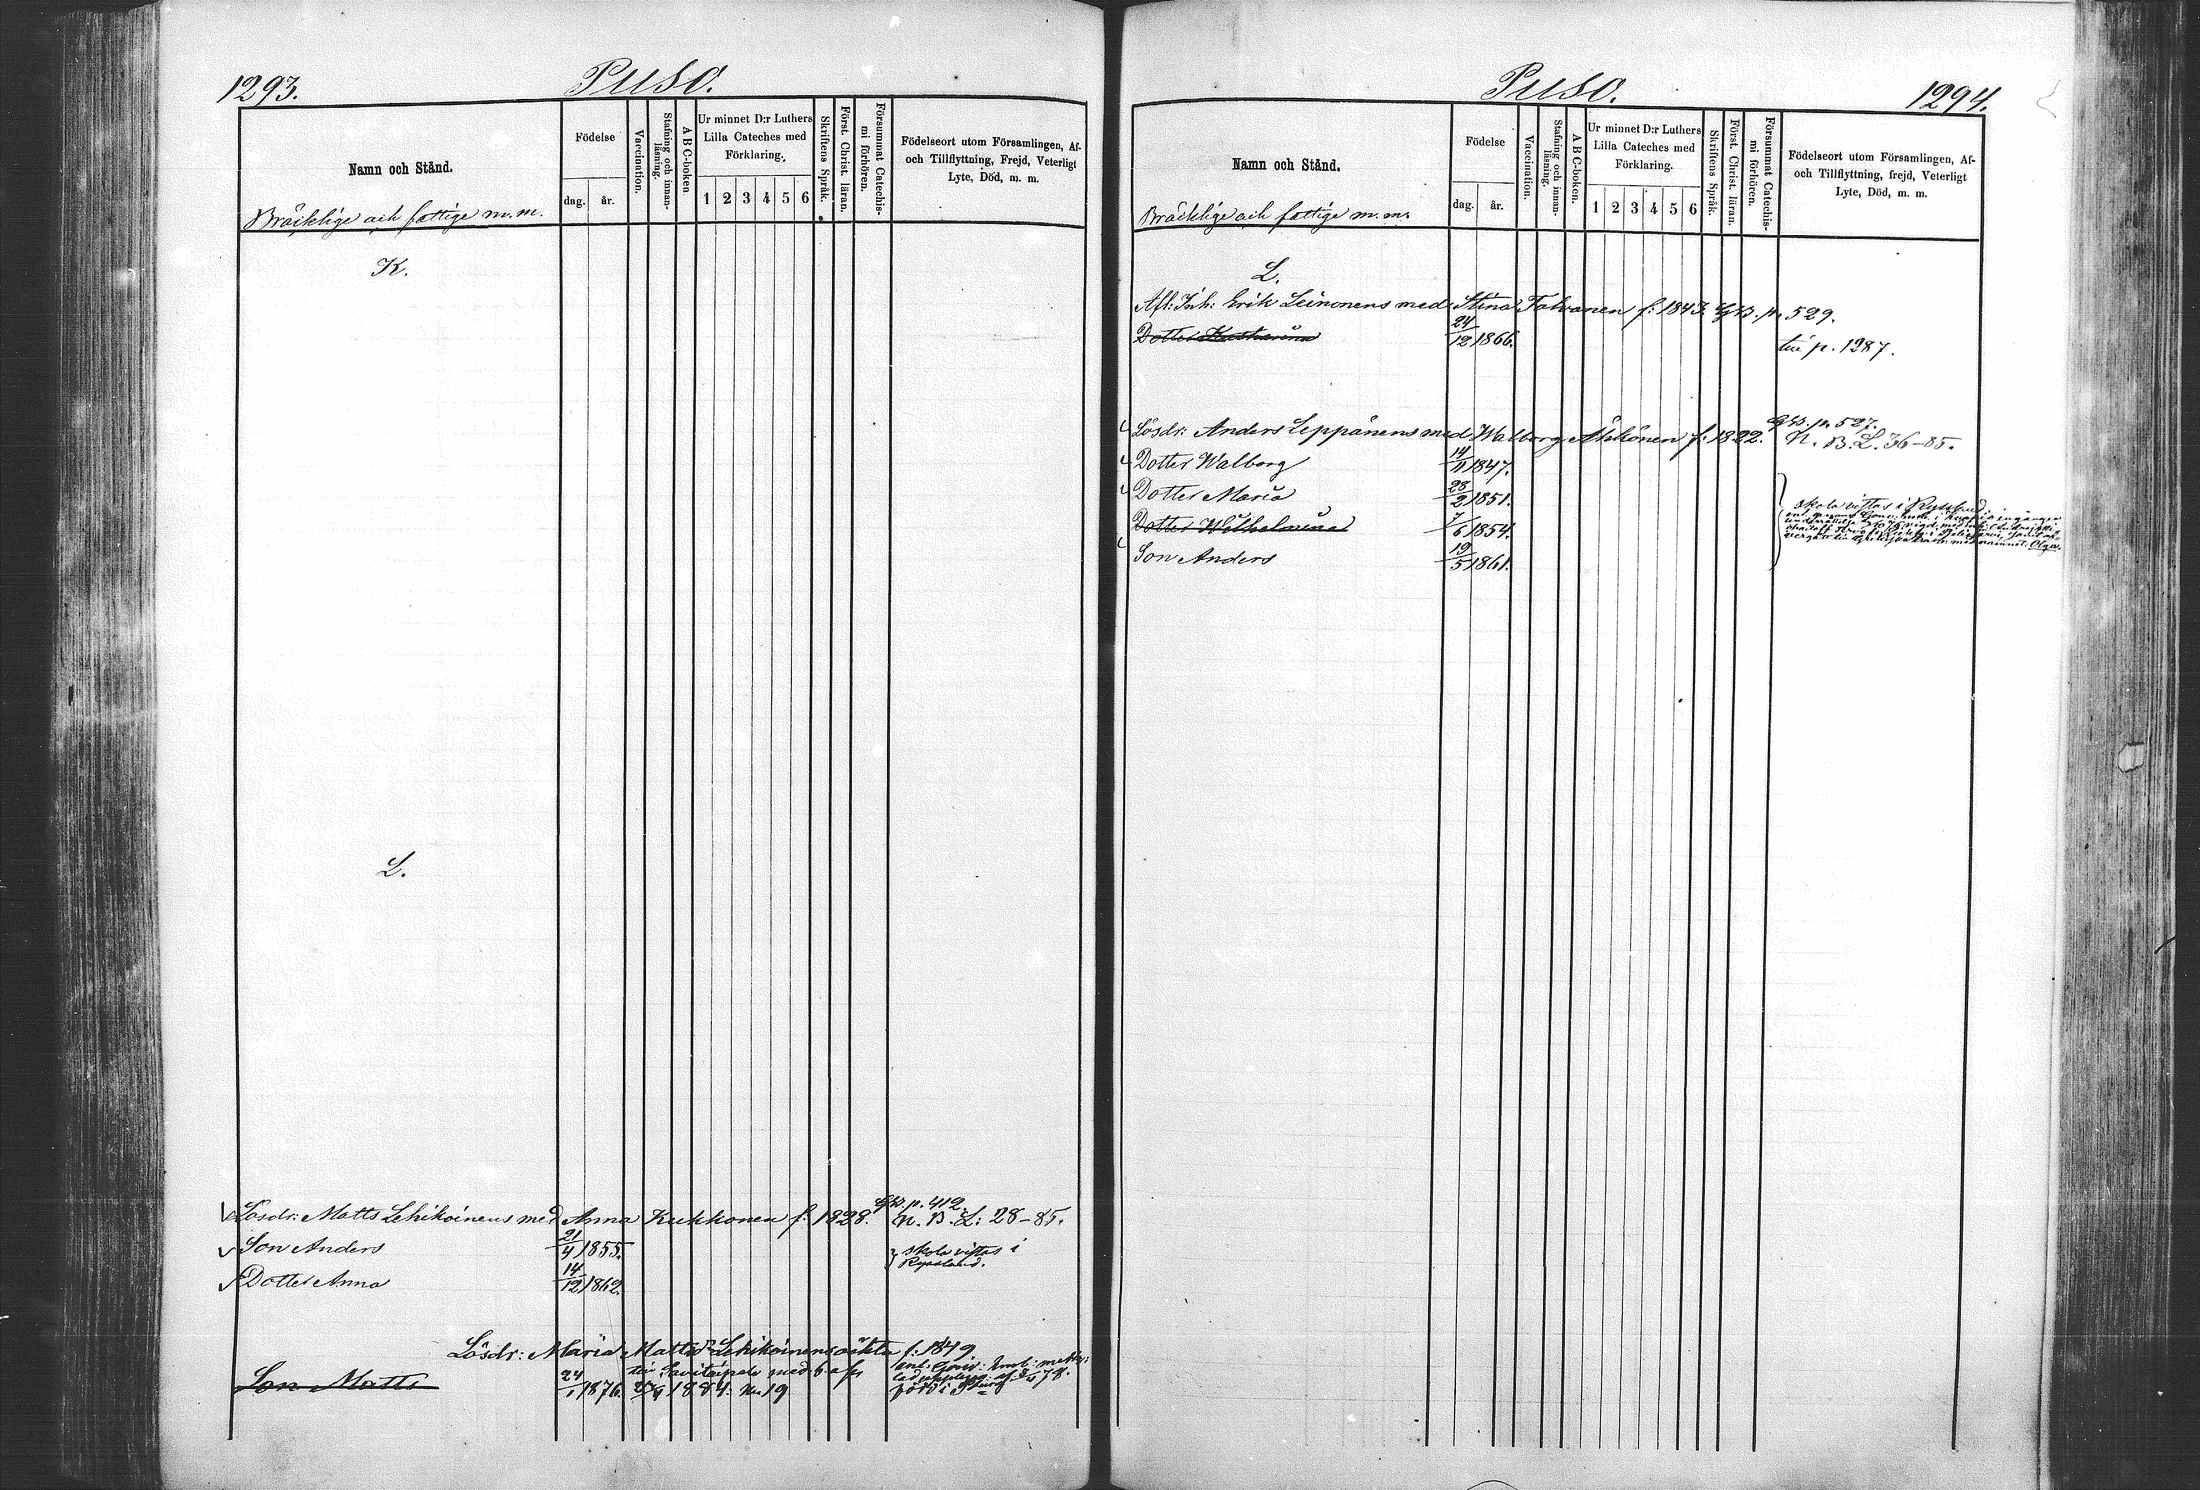 1293.
Puso.
Namn och Stånd.
Födelse
dag.
år.
Vaccination.
Stafning och innan-
läsning.
A B C-boken
Ur minnet D:r Luthers
Lilla Cateches med
Förklaring.
1 2 3 4 5 6
Skriftens Språk.
Först. Christ. läran.
Försummat Catechis-
mi förhören.
Födelseort utom Församlingen, Af-
och Tillflyttning, Frejd, Veterligt
Lyte, Död, m. m.
Bräcklige och fattige m. m.
K.
L.
Gfb. p. 412.
Lösdr: Matts Lehikoinens med Anna Kukkonen f. 1828. N. B. L: 28-85.
Son Anders 21/4 1855. skola vistas i
Ryssland.
Dotter Anna 14/12 1862.
Lösdr: Maria Mattsd:r Lehikoinens oäkta f. 1849
Son Matts 24/1 1876. till Savitaipale med
1884 No 19
Puso.
1294.
Namn och Stånd.
Födelse
dag.
år.
Vaccination.
Stafning och innan-
läsning.
A B C-boken.
Ur minnet D:r Luthers
Lilla Cateches med
Förklaring.
1 2 3 4 5 6
Skriftens Språk.
Först. Christ. läran.
Försummat Catechis-
mi förhören.
Födelseort utom Församlingen, Af-
och Tillflyttning, frejd, Veterligt
Lyte, Död, m. m.
Bräcklige och fattige m. m.
L.
Afl: Inh: Erik Leinonens med Stina Tolvanen f: 1843. Gfb. p. 529.
Dotter Katharina 24/12 1866. till p. 1287.
Gfb. p. 527.
Lösdr: Anders Leppänens med Walborg Ahkönen f: 1822. N. B. L. 36-85.
Dotter Walborg 14/11 1847.
Dotter Maria 28/2 1851.
skola vistas i Ryssland.
Dotter Wilhelmina 7/6 1854.
Olga.
Son Anders 19/5 1861.